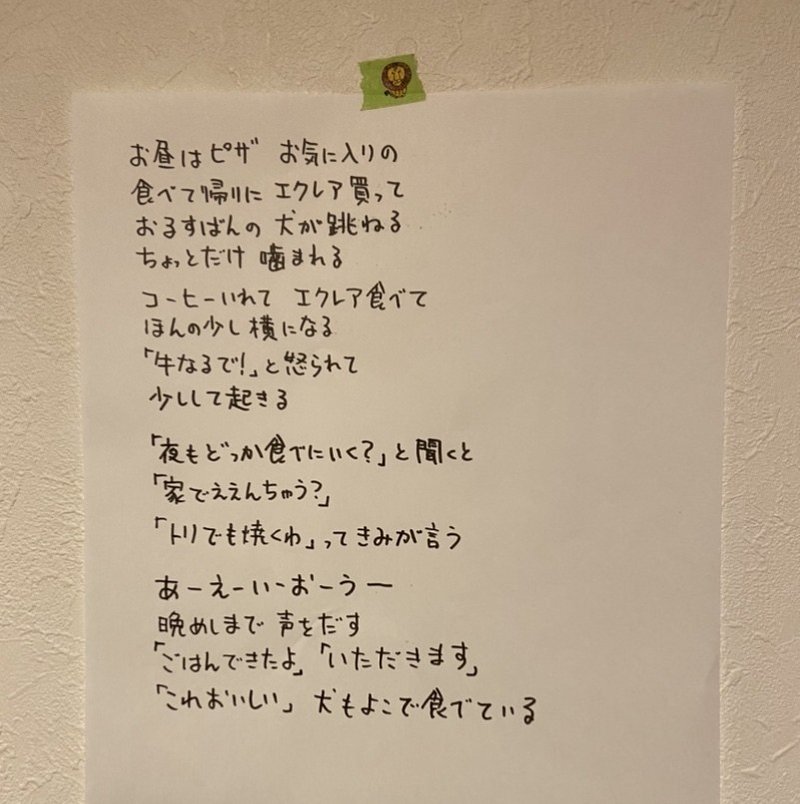 お昼はピザ　お気に入りの
食べて帰りに エクレア買って
おるすばんの 犬が跳ねる
ちょっとだけ 噛まれる
コーヒーいれて　エクレア食べて
ほんの少し横になる
「牛なるで!」と怒られて
少しして起きる
「夜もどっか食べにいく?」と聞くと
「家でええんちゃう?」
「トリでも焼くわ」ってきみが言う
あーえーいーおーうー
晩めしまで 声をだす
「ごはんできたよ」「いただきます」
「これおいしい」 犬もよこで食べている